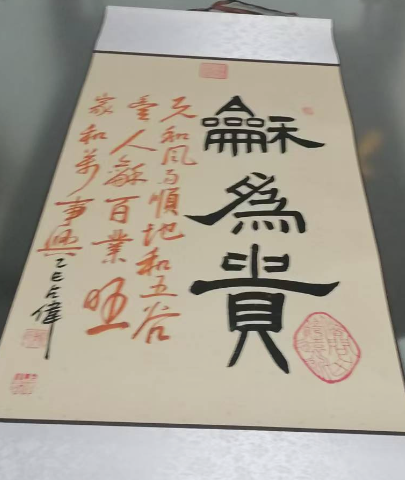 龢爲貴
天和风雨順地和五谷
豐人龢百業旺
家和萬事興
乙巳占偉